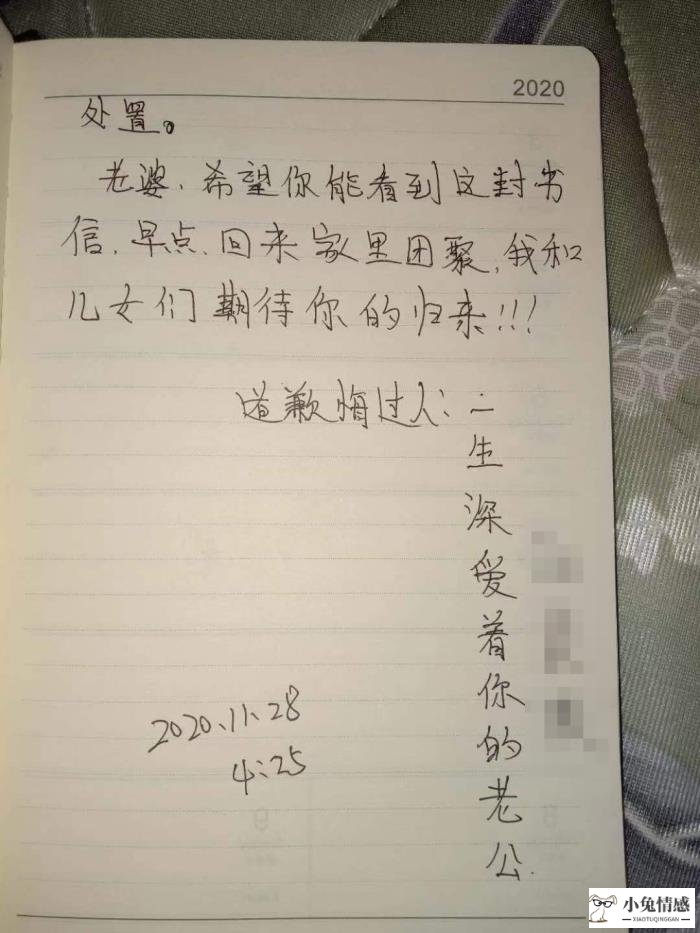 2020
处置。
老婆，希望你能看到这封书
信，早点，回来家里团聚，我和
儿女们期待你的归来！！！
道歉悔过人：一
生
深
爱
着
你
的
老
公.
2020.11.28
4:25
小兔情感
XIAOTUQINGGAN